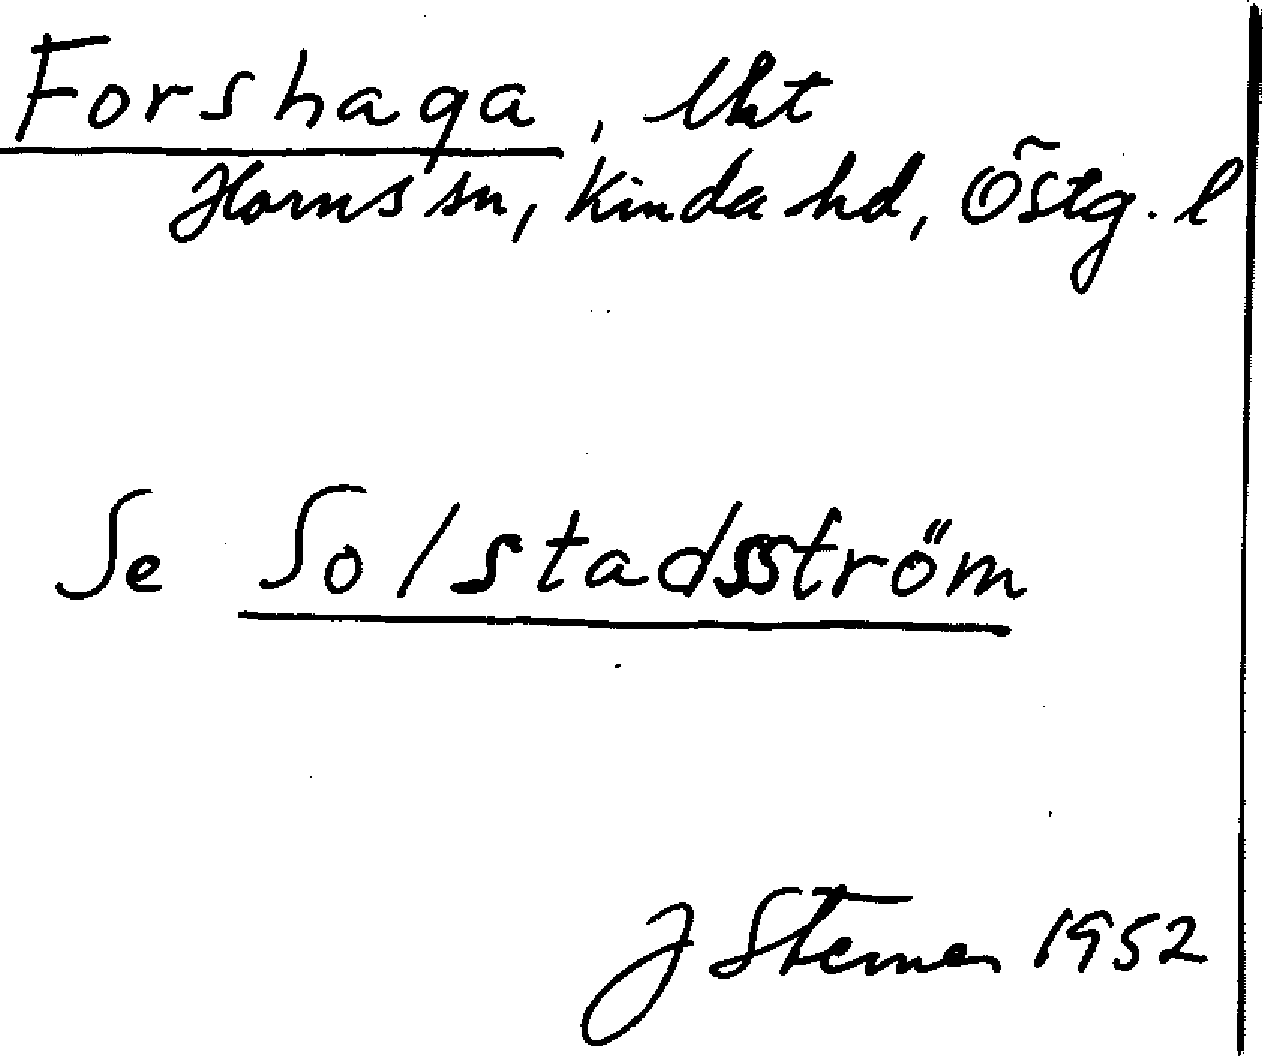 Forshaga, lht
Horns sn, Kinda hd, Östg. l
Se Solstadsström
J 1952